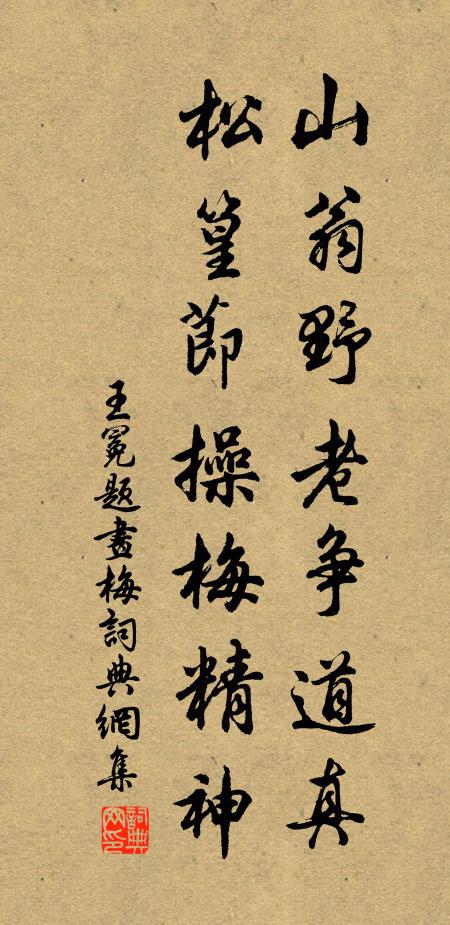 山翁野老争道真
松篁節操梅精神
王冕題畫梅詞典網集
詞典
网印